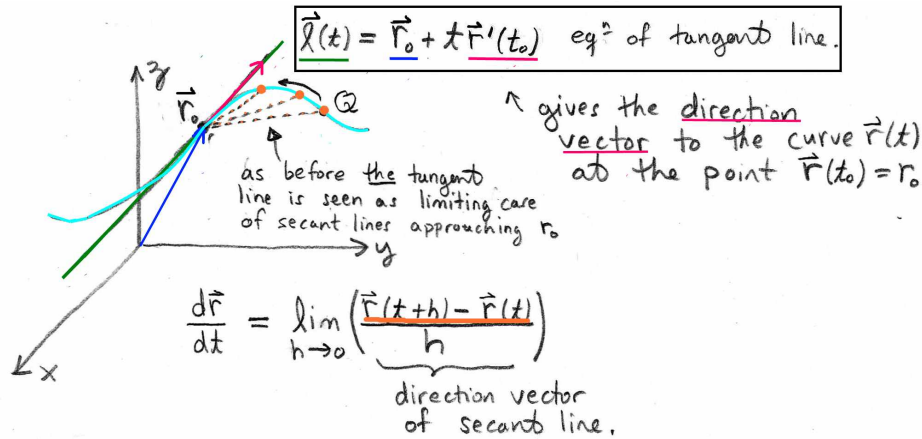 l⃗(t) = r⃗₀ + t r⃗'(t₀) eqⁿ of tangent line.
↖ gives the direction
vector to the curve r⃗(t)
at the point r⃗(t₀) = r₀
z
r⃗₀
Q
as before the tangent
line is seen as limiting case
of secant lines approaching r₀
y
x
dr⃗/dt = lim h→0 ( (r⃗(t+h) − r⃗(t)) / h )
direction vector
of secant line.